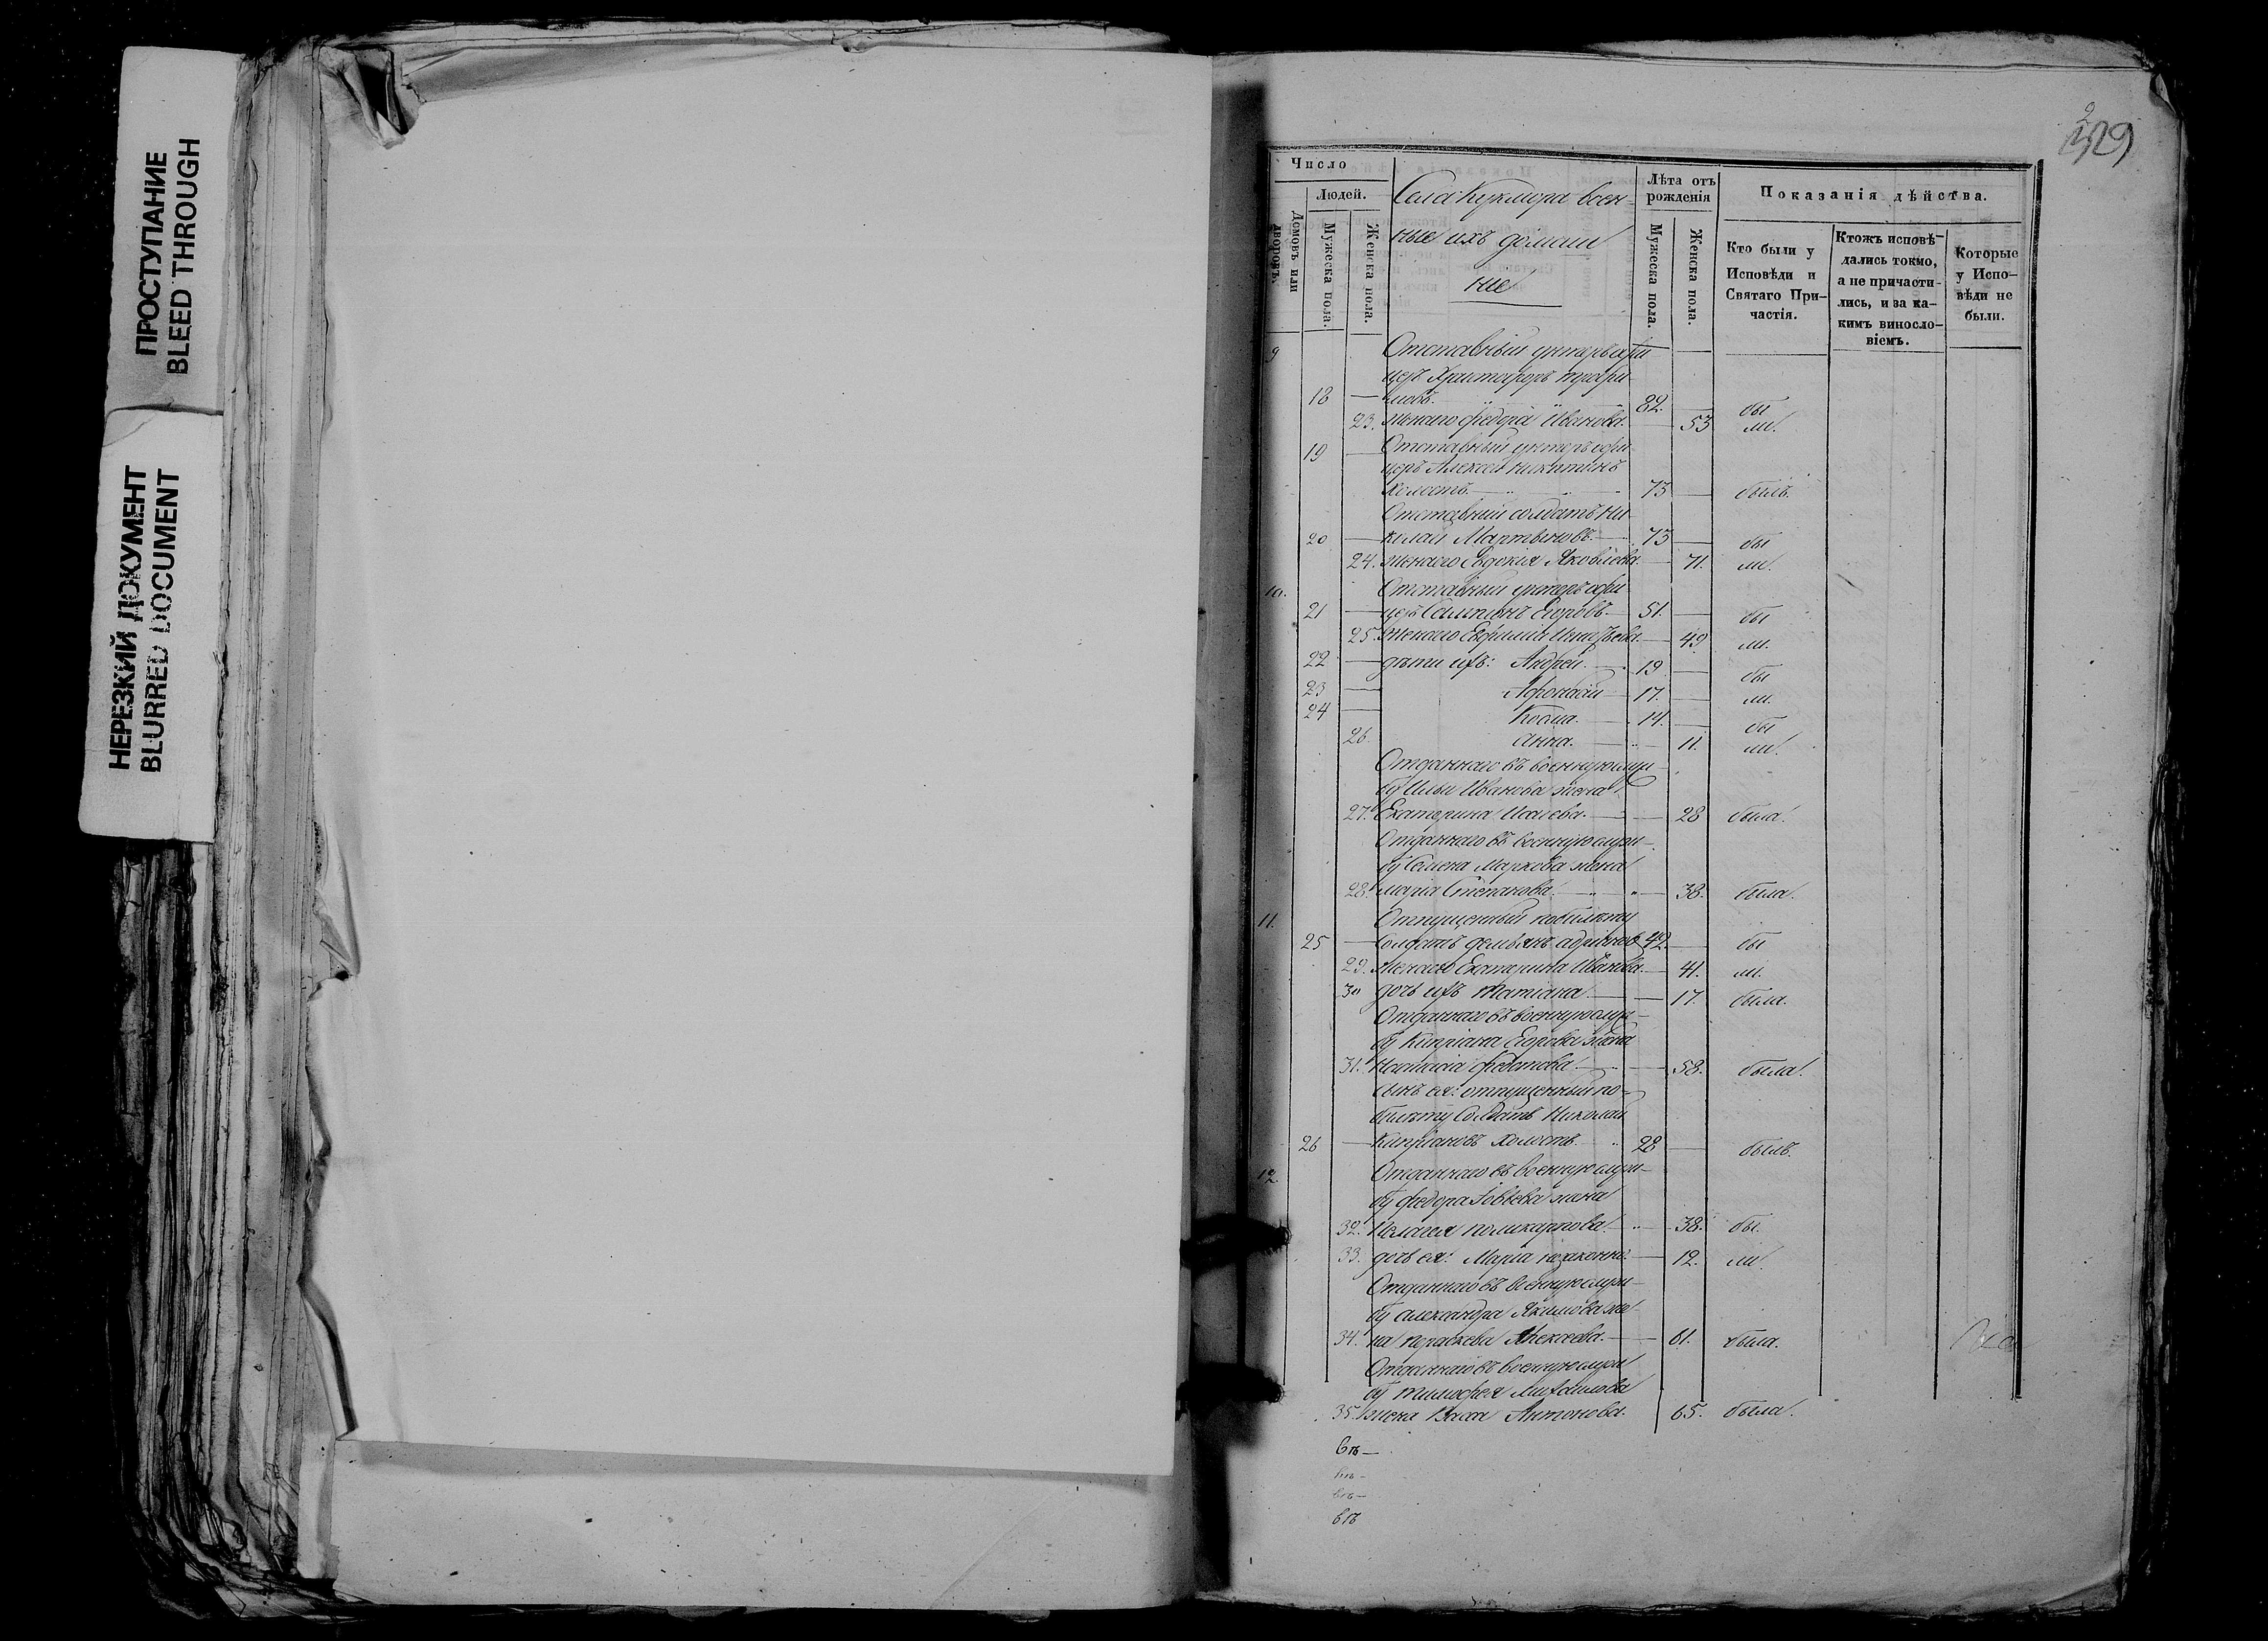 ПРОСТУПАНИЕ
BLEED THROUGH
НЕРЕЗКИЙ ДОКУМЕНТ
BLURRED DOCUMENT
329
Число
Людей.
Домовъ или дворовъ.
Мужеска пола.
Женска пола.
Села Кукмора воен-
ные ихъ домаш
ніе
Лѣта отъ рожденія
Мужеска пола.
Женска пола.
Показанія дѣйства.
Кто были у Исповѣди и Святаго При-частія.
Ктожъ исповѣ-дались токмо, а не причасти-лись, и за ка-кимъ винос­ло-віемъ.
Которые у Испо-вѣди не были.
9 Отставный унтеръ офи
церъ Христофоръ
18 — 82. — бы
23. жена его Федора Иванова. — 53 ли.
19 — Отставный унтеръ офи
церъ Алексей Никитинъ
холостъ. — 73 — былъ.
Отставный солдатъ Ни-
20 — колай Мартыновъ. — 73 — бы
24. жена его Евдокія Яковлева. — 71. ли.
10. Отставный унтеръ офи
21 — церъ Егоровъ. — 51. — бы
25. жена его Евфимія — 49 ли.
22 — дѣти ихъ: Андрей. — 19 — бы
23 — Афонасій — 17. — ли.
24 — Косма. — 14. — бы
26. Анна. — 11. ли.
Отданнаго въ военную служ
бу Ильи Иванова жена
27. Екатерина Исаева. — 28 была.
Отданнаго въ военную служ-
бу Семена Маркова жена
28. Марія Степанова. — 38. была.
11. Отпущенный по билету
25 — Солдатъ Демьянъ 42. — бы
29. жена его Екатерина Иванова. — 41. ли.
30 дочь ихъ Татіана — 17. была.
Отданнаго въ военную служ-
бу Кипріана Егорова жена
31. Настасія — 58. была.
сынъ ея: отпущенный по-
билету Солдатъ Николай
26 — Кипріановъ холостъ. 28 — былъ.
12. Отданнаго въ военную служ-
бу Федора жена
32. Пелагея Поликарпова. — 38. бы.
33. дочь ея: Марія незаконно. — 12. ли.
Отданнаго въ военную служ-
бу Александра Якимова же-
34. на Параскева Алексеева. — 61. была.
Отданнаго въ военную служ
бу Тимофея Михайлова
35. жена Васса Антонова. 65. была.